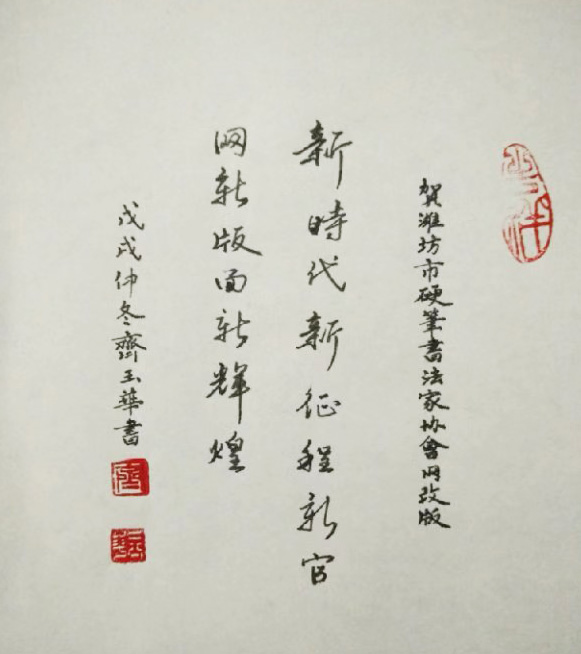 賀濰坊市硬筆書法家協會网改版
新時代新征程新官
网新版面新輝煌
戊戌仲冬齊玉華書